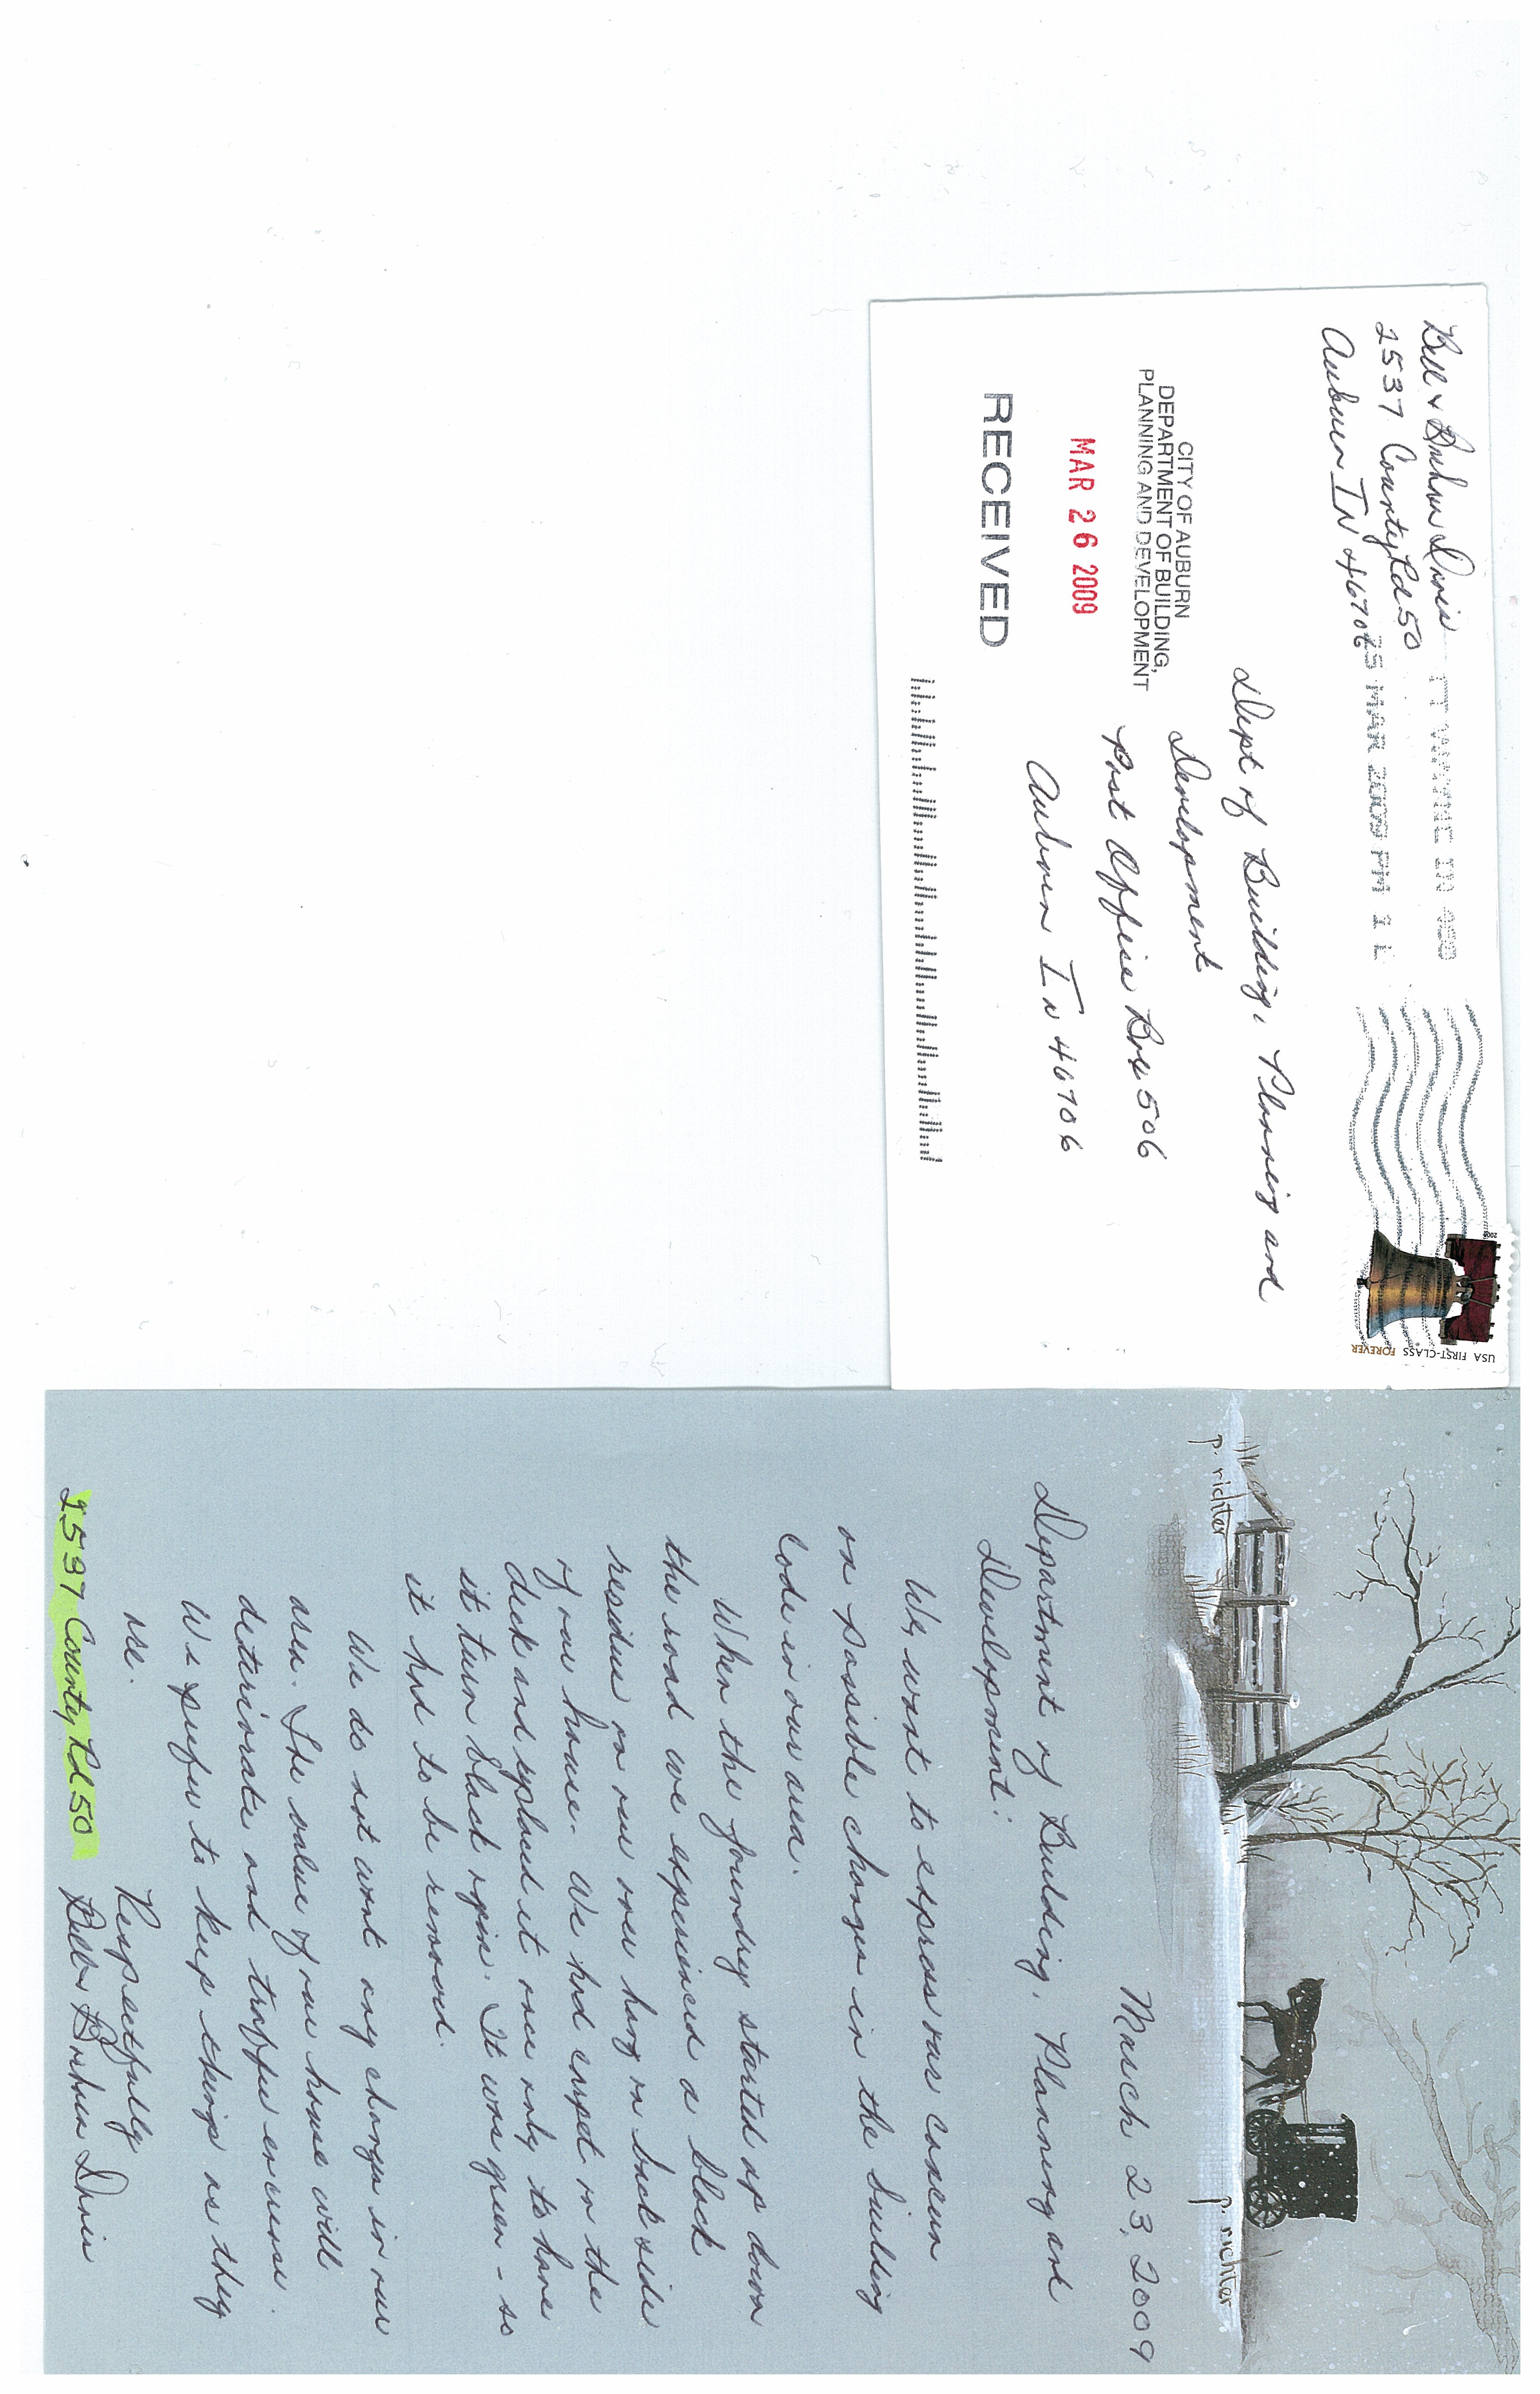 Bill & Barbara Davis
2537 County Rd 50
Auburn IN 46706
FT WAYNE IN 468
25 MAR 2009 PM 1 L
2008
USA FIRST-CLASS FOREVER
Dept of Building, Planning and
Development
Post Office Box 506
Auburn IN 46706
CITY OF AUBURN
DEPARTMENT OF BUILDING,
PLANNING AND DEVELOPMENT
MAR 26 2009
RECEIVED
p. richter
p. richter
March 23, 2009
Department of Building, Planning and
Development:
We, want to express our concern
on possible changes in the building
code in our area.
When the foundry started up down
the road we experienced a black
residue on our over hang on back side
of our house. We had carpet on the
deck and replaced it once only to have
it turn black again. It was green - so
it had to be removed.
We do not want any change in our
area. The value of our house will
deteriorate and traffic increase.
We prefer to keep things as they
are.
Respectfully
2537 County Rd 50 Bill & Barbara Davis